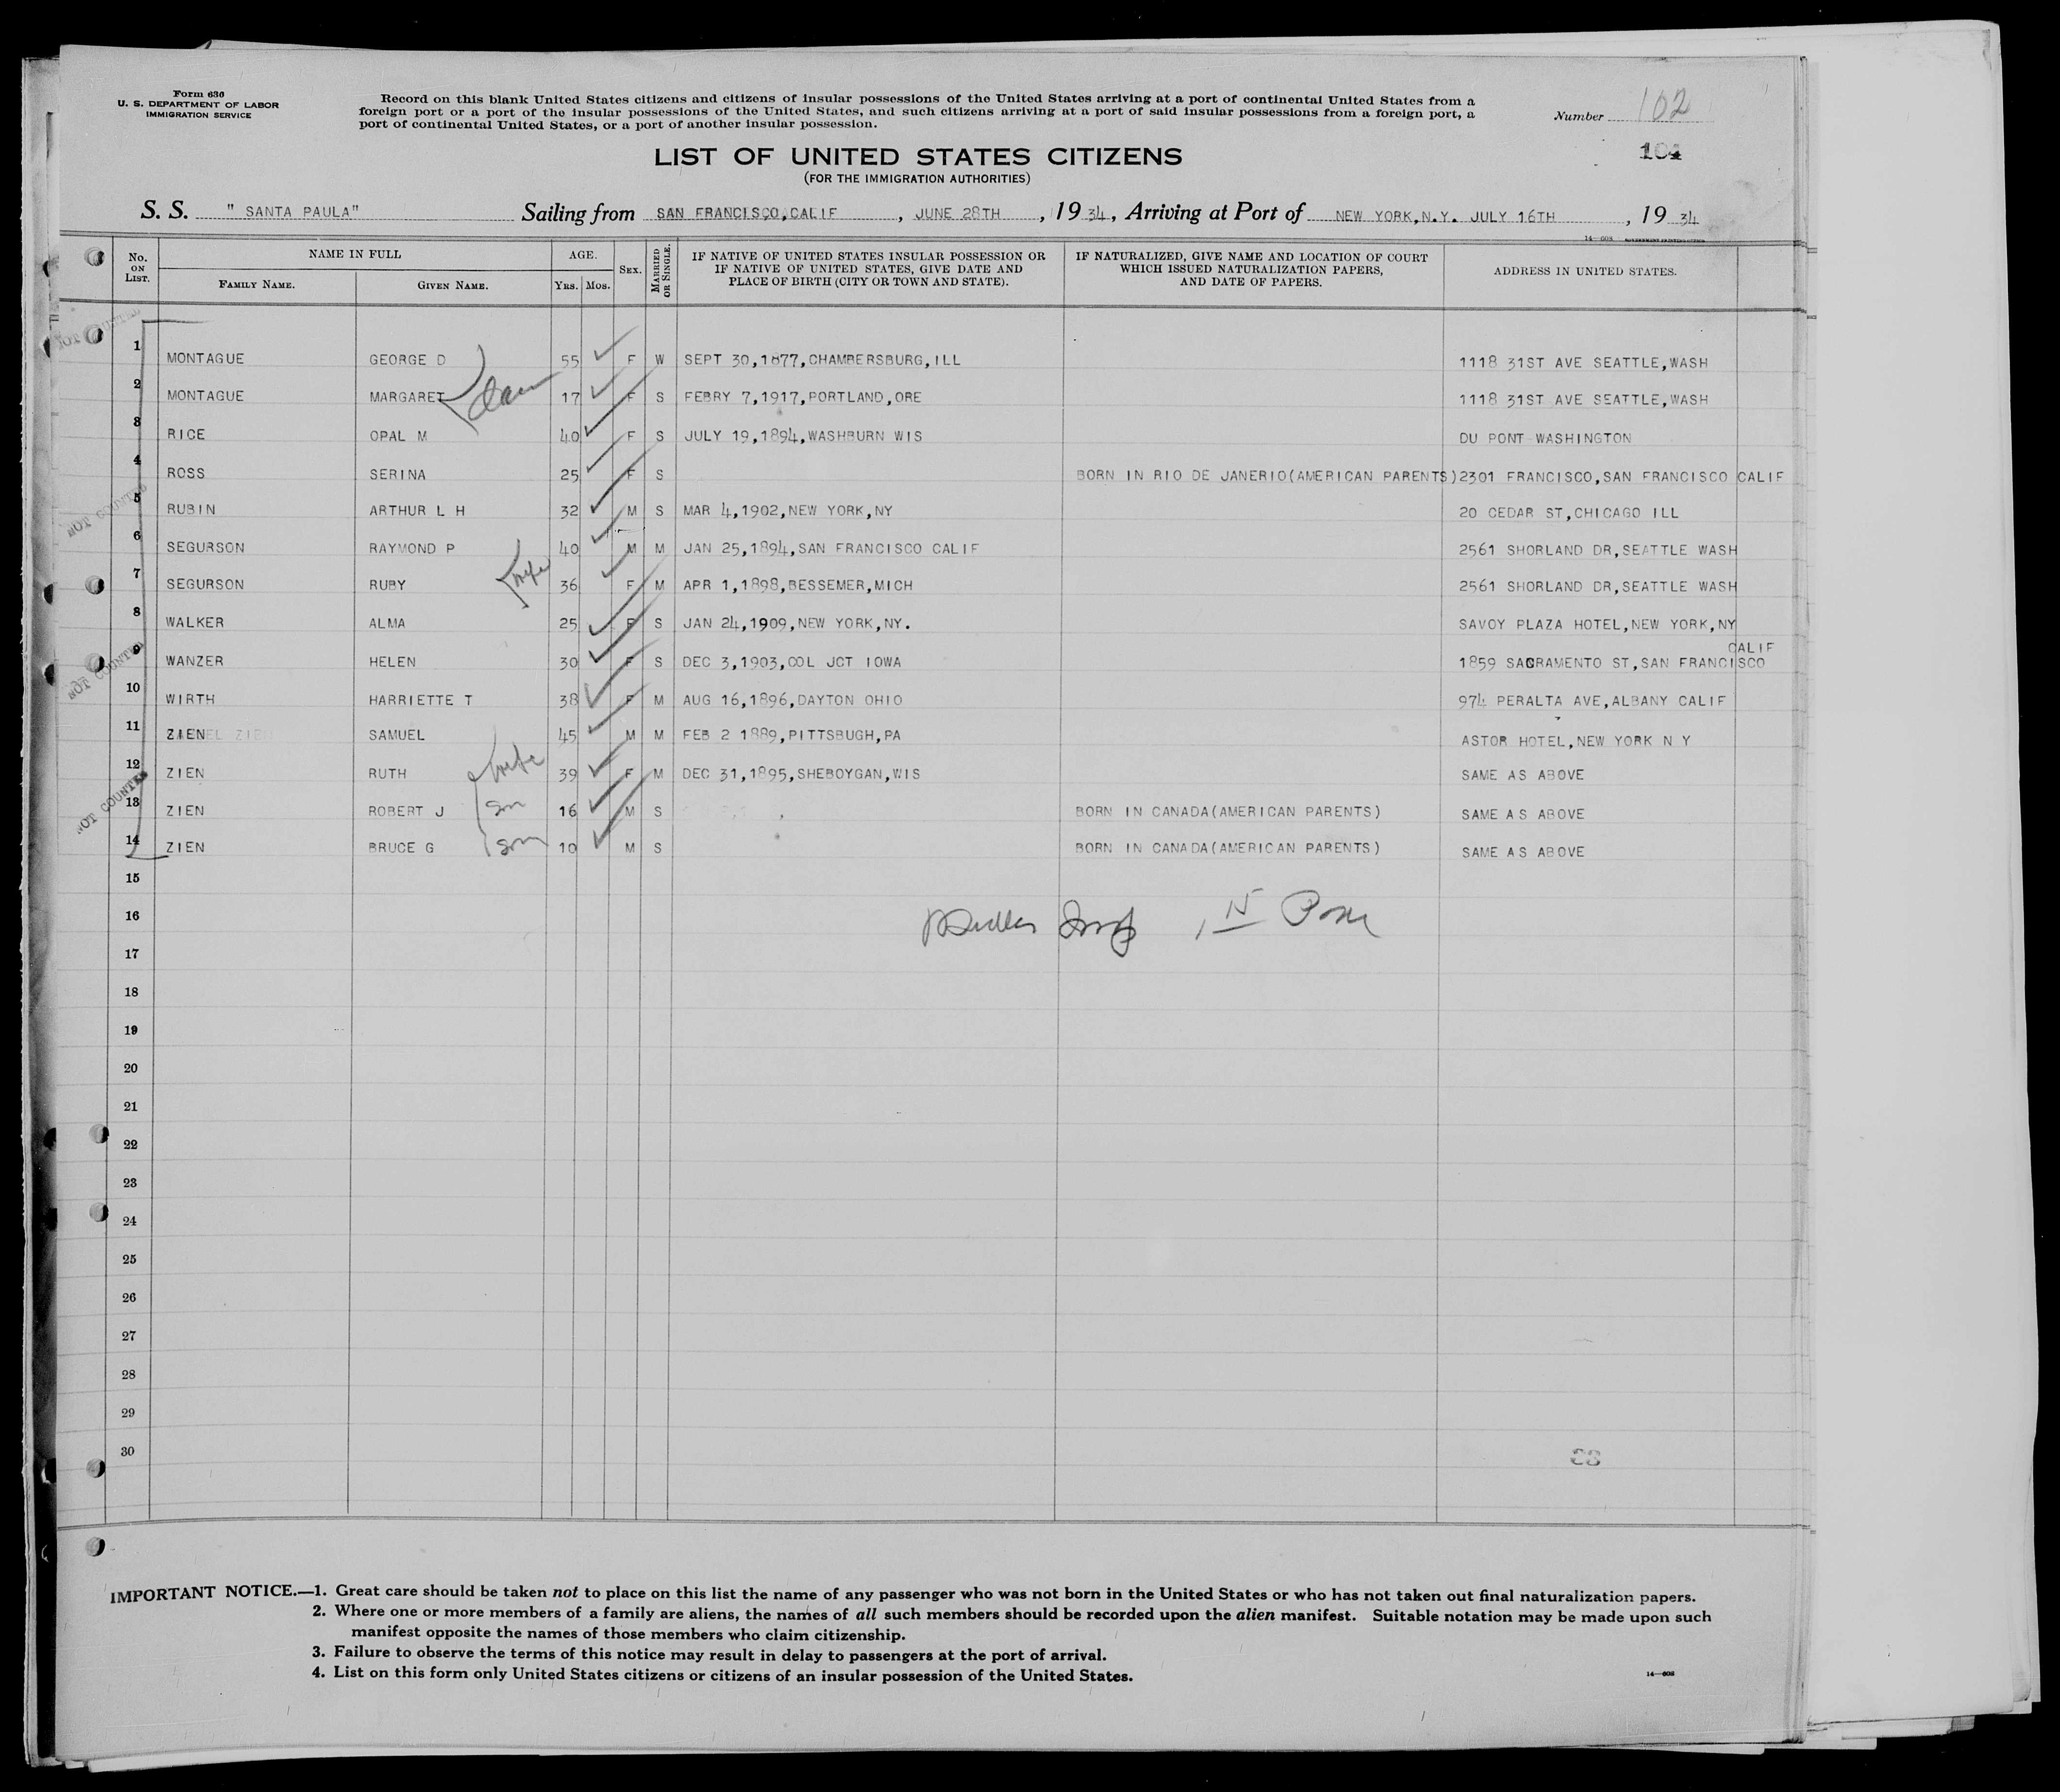 Form 630
U. S. DEPARTMENT OF LABOR
IMMIGRATION SERVICE
Record on this blank United States citizens and citizens of insular possessions of the United States arriving at a port of continental United States from a
foreign port or a port of the insular possessions of the United States, and such citizens arriving at a port of said insular possessions from a foreign port, a
port of continental United States, or a port of another insular possession.
Number 102
104
LIST OF UNITED STATES CITIZENS
(FOR THE IMMIGRATION AUTHORITIES)
S. S. " SANTA PAULA" Sailing from SAN FRANCISCO,CALIF , JUNE 28TH , 19 34, Arriving at Port of NEW YORK,N.Y. JULY 16TH , 19 34
No. ON LIST. NAME IN FULL FAMILY NAME. GIVEN NAME. AGE. YRS. MOS. SEX. MARRIED OR SINGLE. IF NATIVE OF UNITED STATES INSULAR POSSESSION OR IF NATIVE OF UNITED STATES, GIVE DATE AND PLACE OF BIRTH (CITY OR TOWN AND STATE). IF NATURALIZED, GIVE NAME AND LOCATION OF COURT WHICH ISSUED NATURALIZATION PAPERS, AND DATE OF PAPERS. ADDRESS IN UNITED STATES.
NOT COUNTED
1 MONTAGUE GEORGE D 55 F W SEPT 30,1877,CHAMBERSBURG,ILL 1118 31ST AVE SEATTLE,WASH
2 MONTAGUE MARGARET dau 17 F S FEBRY 7,1917,PORTLAND,ORE 1118 31ST AVE SEATTLE,WASH
3 RICE OPAL M 40 F S JULY 19,1894,WASHBURN WIS DU PONT WASHINGTON
4 ROSS SERINA 25 F S BORN IN RIO DE JANERIO(AMERICAN PARENTS) 2301 FRANCISCO,SAN FRANCISCO CALIF
NOT COUNTED
5 RUBIN ARTHUR L H 32 M S MAR 4,1902,NEW YORK,NY 20 CEDAR ST,CHICAGO ILL
6 SEGURSON RAYMOND P 40 M M JAN 25,1894,SAN FRANCISCO CALIF 2561 SHORLAND DR,SEATTLE WASH
7 SEGURSON RUBY wife 36 F M APR 1,1898,BESSEMER,MICH 2561 SHORLAND DR,SEATTLE WASH
8 WALKER ALMA 25 F S JAN 24,1909,NEW YORK,NY. SAVOY PLAZA HOTEL,NEW YORK,NY
NOT COUNTED
9 WANZER HELEN 30 F S DEC 3,1903,COL JCT IOWA 1859 SACRAMENTO ST,SAN FRANCISCO CALIF
10 WIRTH HARRIETTE T 38 F M AUG 16,1896,DAYTON OHIO 974 PERALTA AVE,ALBANY CALIF
11 ZIEN SAMUEL 45 M M FEB 2 1889,PITTSBUGH,PA ASTOR HOTEL,NEW YORK N Y
12 ZIEN RUTH wife 39 F M DEC 31,1895,SHEBOYGAN,WIS SAME AS ABOVE
NOT COUNTED
13 ZIEN ROBERT J son 16 M S BORN IN CANADA(AMERICAN PARENTS) SAME AS ABOVE
14 ZIEN BRUCE G son 10 M S BORN IN CANADA(AMERICAN PARENTS) SAME AS ABOVE
15
16
17
18
19
20
21
22
23
24
25
26
27
28
29
30
IMPORTANT NOTICE.—1. Great care should be taken not to place on this list the name of any passenger who was not born in the United States or who has not taken out final naturalization papers.
2. Where one or more members of a family are aliens, the names of all such members should be recorded upon the alien manifest. Suitable notation may be made upon such
manifest opposite the names of those members who claim citizenship.
3. Failure to observe the terms of this notice may result in delay to passengers at the port of arrival.
4. List on this form only United States citizens or citizens of an insular possession of the United States.
14—608